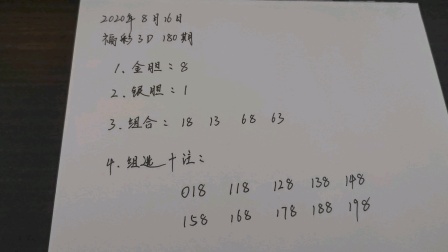 2020年8月16日
福彩3D 180期
1、金胆：8
2、银胆：1
3、组合：18 13 68 63
4、组选十注：
018 118 128 138 148
158 168 178 188 198